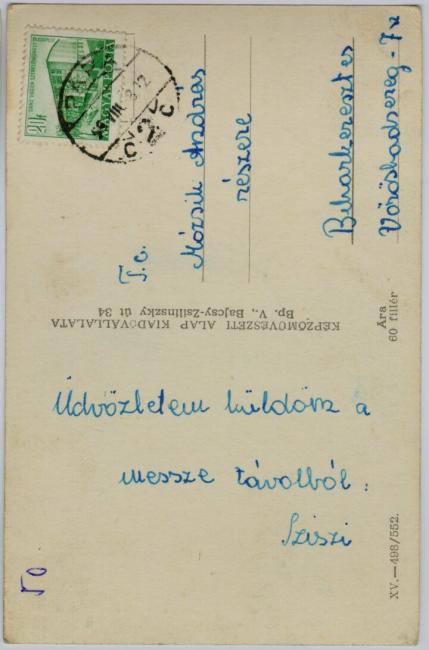 20f
MAGYAR POSTA
T. c.
Mózsik András
részére
Biharkeresztes
Vöröshadsereg - 7 sz
KÉPZŐMŰVÉSZETI ALAP KIADÓVÁLLALATA
Bp. V., Bajcsy-Zsilinszky út 34
Ára
60 fillér
Üdvözletem küldöm a
messze távolból:
Sziszi
50
XV.—498/552.